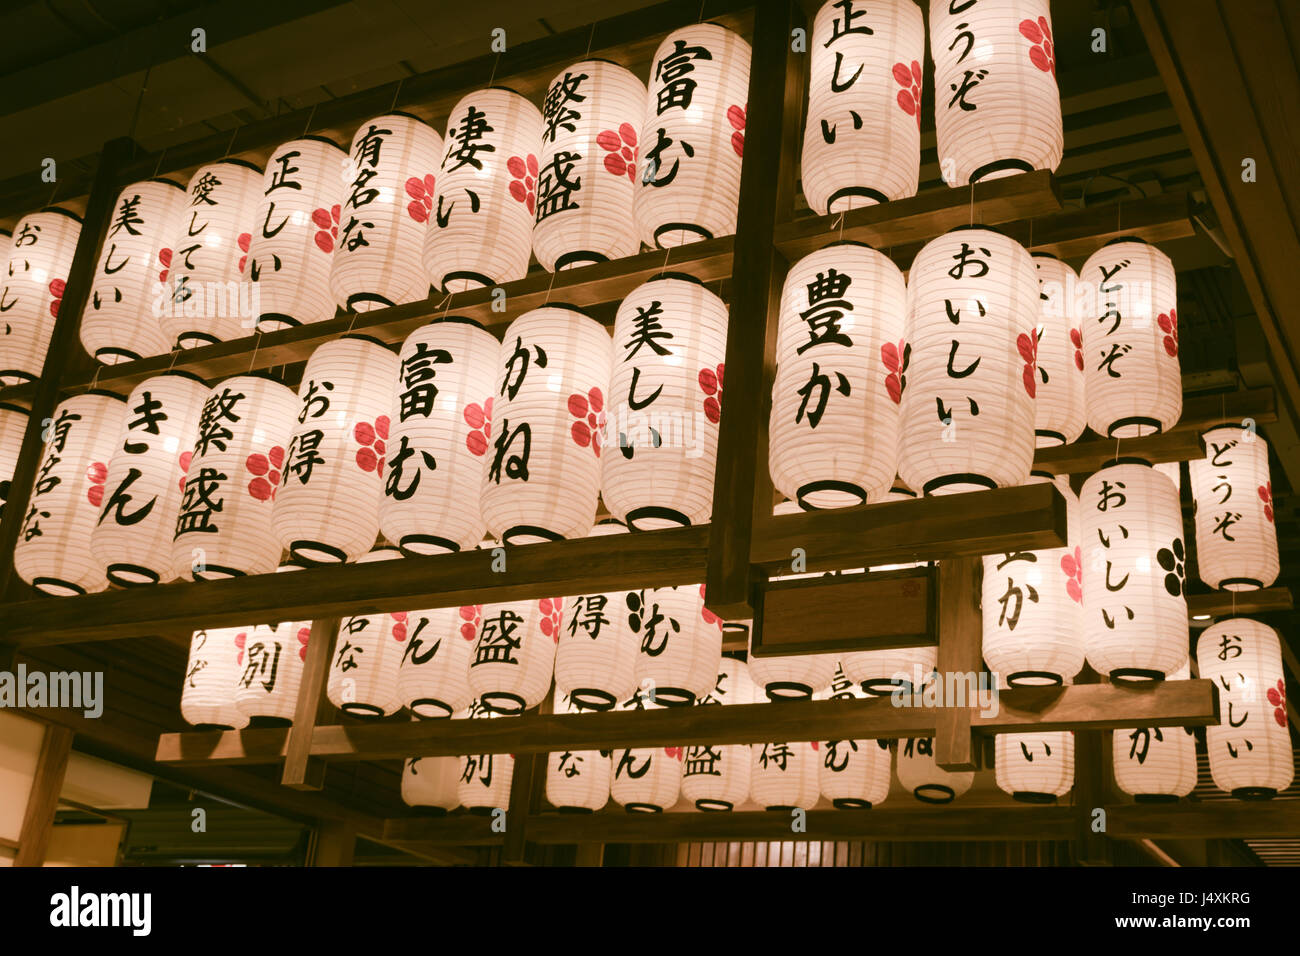 正しい
どうぞ
おいしい
美しい
愛してる
正しい
有名な
凄い
繁盛
富む
有名な
きん
繁盛
お得
富む
かね
美しい
豊か
おいしい
どうぞ
どうぞ
おいしい
おいしい
か
うぞ
別
な
ん
盛
得
む
ぞ
別
な
ん
盛
得
む
ね
い
か
alamy
alamy
Image ID: J4XKRG
www.alamy.com